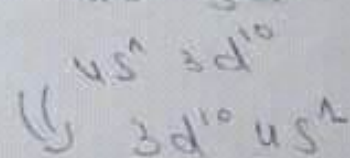 4s¹ 3d¹⁰
3d¹⁰ 4s¹